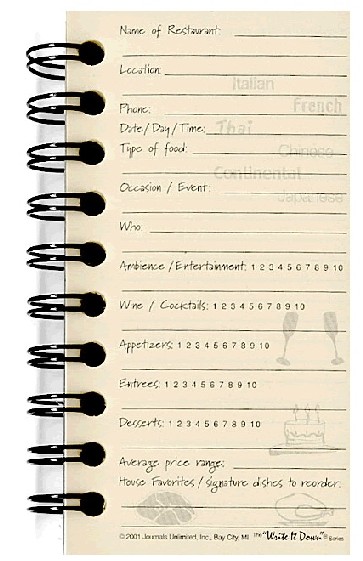 Name of Restaurant:
Location:
Italian
French
Phone:
Date/Day/Time:
Thai
Type of food:
Chinese
Continental
Occasion / Event:
Japanese
Who:
Ambience / Entertainment: 1 2 3 4 5 6 7 8 9 10
Wine / Cocktails: 1 2 3 4 5 6 7 8 9 10
Appetizers: 1 2 3 4 5 6 7 8 9 10
Entrees: 1 2 3 4 5 6 7 8 9 10
Desserts: 1 2 3 4 5 6 7 8 9 10
Average price range:
House Favorites / signature dishes to reorder:
©2001 Journals Unlimited, Inc., Bay City, MI The "Write It Down"® Series